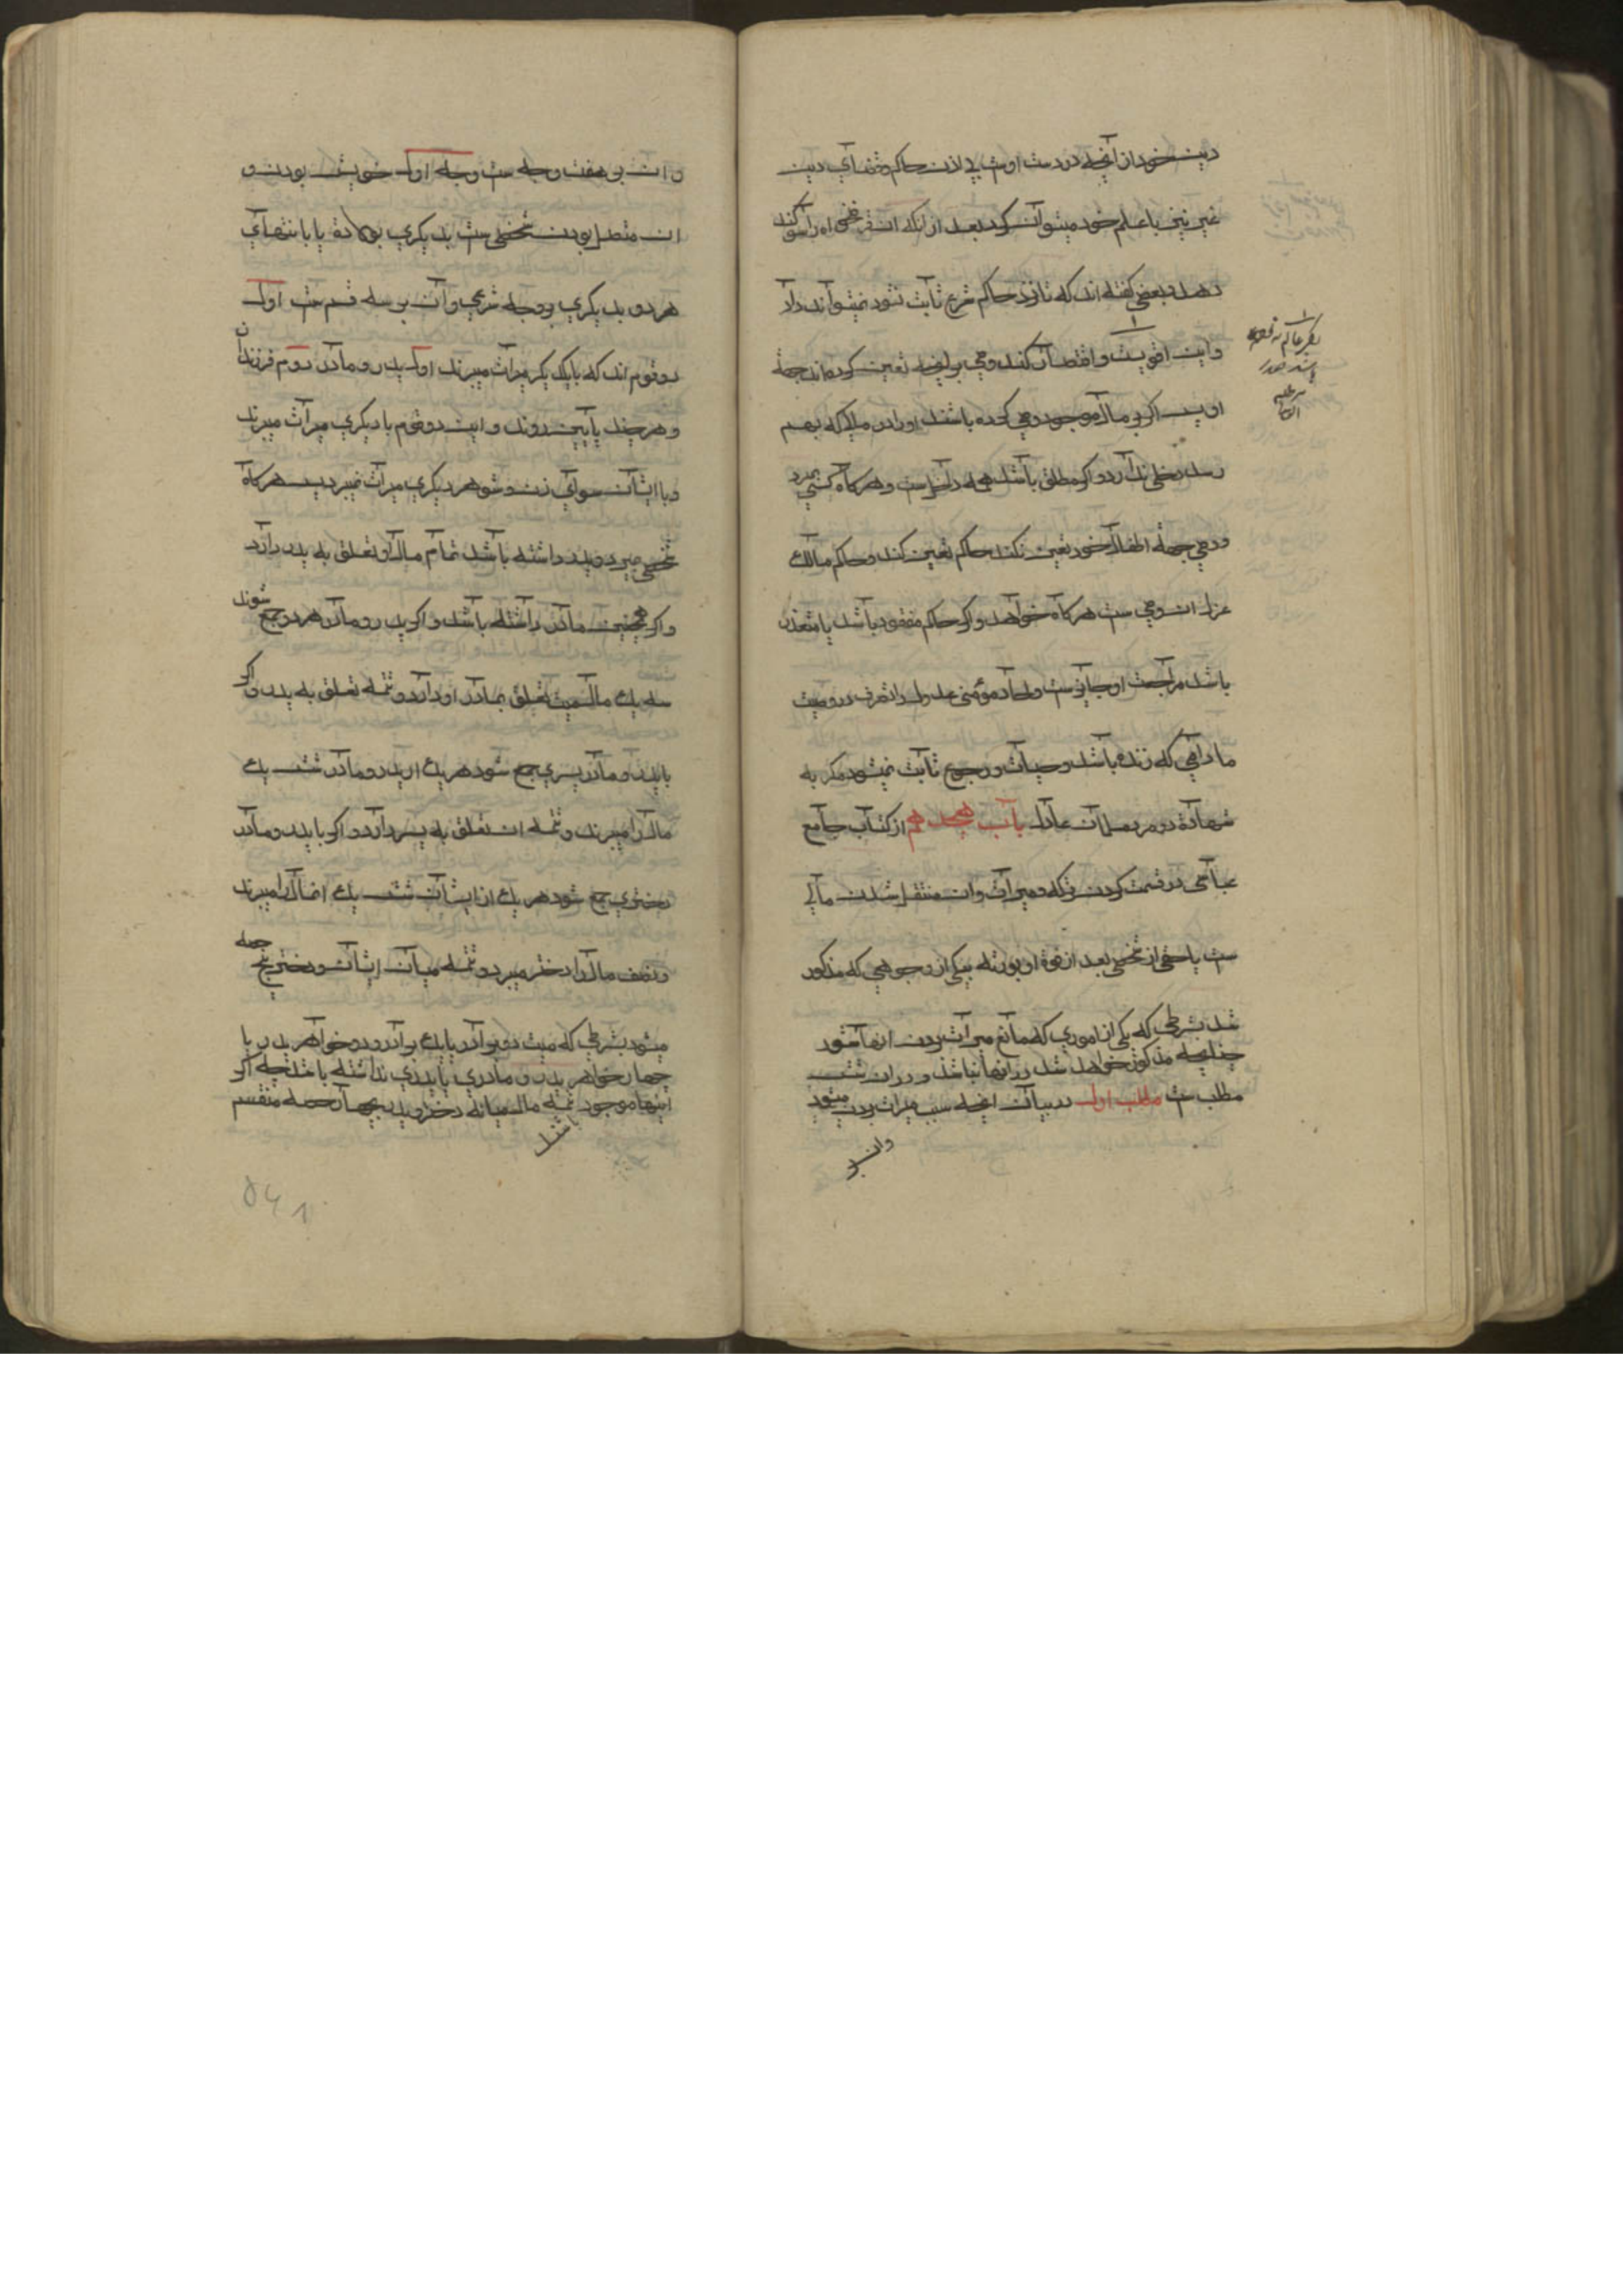 دین خود از آنچه در دست اوست بی اذن حاکم و قضآي دین
غیر نیز با علم خود میتوآن کرد بعد از آنکه آن قرضخواه را سوکند
دهد و بعضی کفته اند که تا نزد حاکم شرع ثآبت نشود نمیتوآند دآد
وآین اقویست و اقتصآر کند وصی بر آنچه تعین کرده اند جهة
او پس اکر بر مآل موجود وصی کرده باشند او را در مالی که بهم
رسد دخلی ندآرد و اکر مطلق بآشد همه دآخل است و هرکآه کسی بمیرد
و وصي جهة اطفآل خود تعین نکند حاکم تعین کند و حاکم مآلك
عزل ان وصی ست هرکآه خوآهد و اکر حاکم مفقود بآشد یا متعذر
باشد مرآجعت او جآیز ست و احآد مؤمنی عدول را تصرف در وصیت
ما دآمی که زنده بآشد وصیآت و رجوع ثآبت نمیشود مکر به
شهآدة دو مرد مسلمآن عآدل بآب هیجدهم از کتآب جآمع
عبآسی در قسمت کردن ترکه و میرآث و ان منتقل شدن مآلی
ست یا حقی از شخصی بعد از فوة او بورثه بیکی از وجوهی که مذکور
شد بشرطی که یکی از اموري که مآنع میرآث بردن انهآ شود
چنانچه مذکور خوآهد شد در انها نباشد و در ان شش
مطلب ست مطلب اول در بیآن انچه سبب میراث بردن میشود
وان بر
وان بر هفت وجه ست وجه اول خویش بودن و
ان متصل بودن شخصی ست بدیکري بولادة یا بانتهآي
هر دو بدیکري بوجه شرعی وآن بر سه قسم ست اول
دو قوم اند که با یکدیکر میرآث میبرند اول پدر و مآدر دوم فرزندآن
و هر چند پآیین روند و این دو قوم با دیکري میرآث میبرند
و با ایشآن سوآي زن و شوهر دیکري میرآث نمیبرد پس هرکآه
شخصی میرد و پدر داشته بآشد تمآم مآل او تعلق به پدر دآرد
و اکر همچنین مآدر دآشته بآشد و اکر پدر و مآدر هر دو جمع شوند
سه یك مآل میت تعلق بمآدر او دآرد و تتمه تعلق به پدر و اکر
با پدر و مآدر پسري جمع شود هر یك از پدر و مآدر شش یك
مآل را میبرند و تتمه ان تعلق به پسر دآرد و اکر با پدر و مآدر
دختري جمع شود هر یك از ایشآن شش یك از مآل را میبرند
و نصف مآل را دختر میبرد و تتمه میآن ایشآن و دختر پنج حصه
میشود بشرطی که میت دو برآدر یا یك برآدر و دو خوآهر پدر یا
چهار خوآهر پدر و مآدري یا پدري نداشته باشد چه اکر
اینها موجود باشند تتمه مال میانه دختر و پدر بچهآر حصه منقسم
۵۶۱